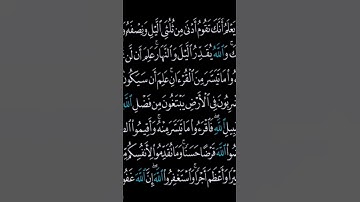 يَعْلَمُ أَنَّكَ تَقُومُ أَدْنَىٰ مِن ثُلُثَيِ ٱلَّيْلِ وَنِصْفَهُۥ
كَ ۚ وَٱللَّهُ يُقَدِّرُ ٱلَّيْلَ وَٱلنَّهَارَ ۚ عَلِمَ أَن لَّن
ءُوا۟ مَا تَيَسَّرَ مِنَ ٱلْقُرْءَانِ ۚ عَلِمَ أَن سَيَكُونُ
ضْرِبُونَ فِى ٱلْأَرْضِ يَبْتَغُونَ مِن فَضْلِ ٱللَّهِ
بِيلِ ٱللَّهِ ۖ فَٱقْرَءُوا۟ مَا تَيَسَّرَ مِنْهُ ۚ وَأَقِيمُوا۟
ضُوا۟ ٱللَّهَ قَرْضًا حَسَنًا ۚ وَمَا تُقَدِّمُوا۟ لِأَنفُسِكُم
يْرًا وَأَعْظَمَ أَجْرًا ۚ وَٱسْتَغْفِرُوا۟ ٱللَّهَ ۖ إِنَّ ٱللَّهَ غَفُو